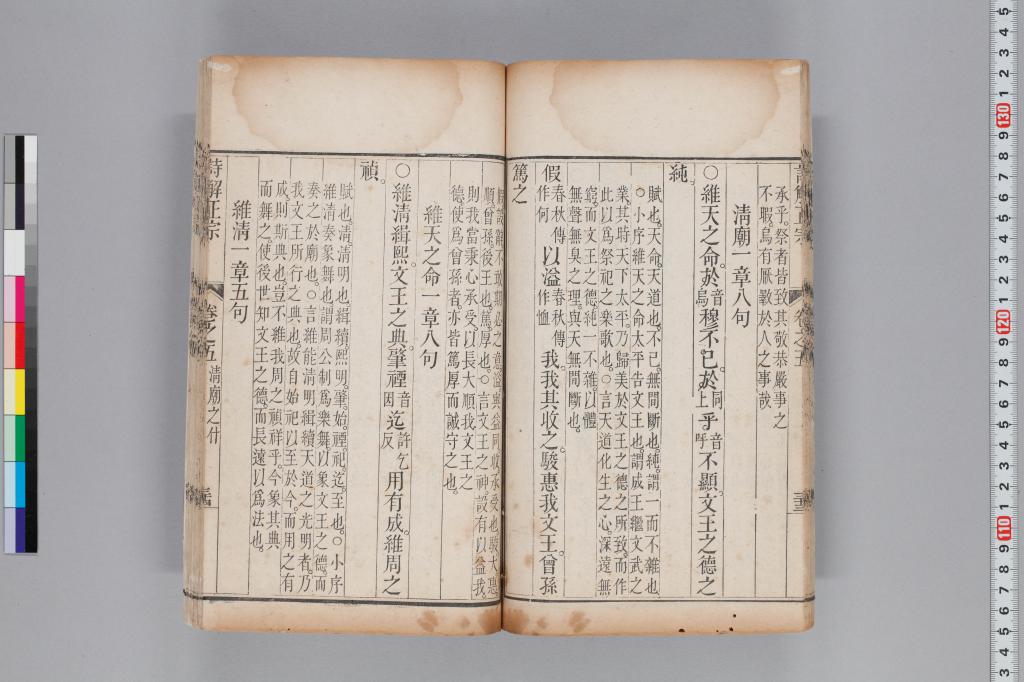 承乎。祭者皆致其敬恭嚴事之
不暇。烏有厭斁於人之事哉
清廟一章八句
○維天之命。於音烏穆不已。於同上乎音呼不顯。文王之德之
純。
賦也。天命。天道也。不已。無間斷也。純。謂一而不雜也
○小序維天之命太平告文王也。謂成王繼文武之
業。其時天下太平。乃歸美於文王之德之所致。而作
此以爲祭祀之樂歌也。○言天道化生之心。深遠無
窮。而文王之德。純一不雜。以體
無聲無臭之理。與天無間斷也。
假春秋傳作何以溢春秋傳作恤。我我其收之。駿惠我文王。曾孫
篤之
順。曾孫。後王也。篤。厚也。○言文王之神。設有以益我
則我當秉心承受。以長大順我文王之
德。使爲曾孫者亦皆篤厚而誠守之也。
維天之命一章八句
○維清緝熙。文王之典。肇禋音因迄許乞反用有成。維周之
禎。
賦也。清。清明也。緝。續。熙。明。肇。始。禋。祀。迄。至也。○小序
維清奏象舞也。謂周公制爲樂舞。以象文王之德。而
奏之於廟也。○言維能清明緝續天道之光明者。乃
我文王所行之典也。故自始祀以至於今。而用之有
成。則斯典也。豈不維我周之禎祥乎。今象其典
而舞之。使後世知文王之德而長遠以爲法也。
維清一章五句
詩解正宗 卷之五 清廟之什